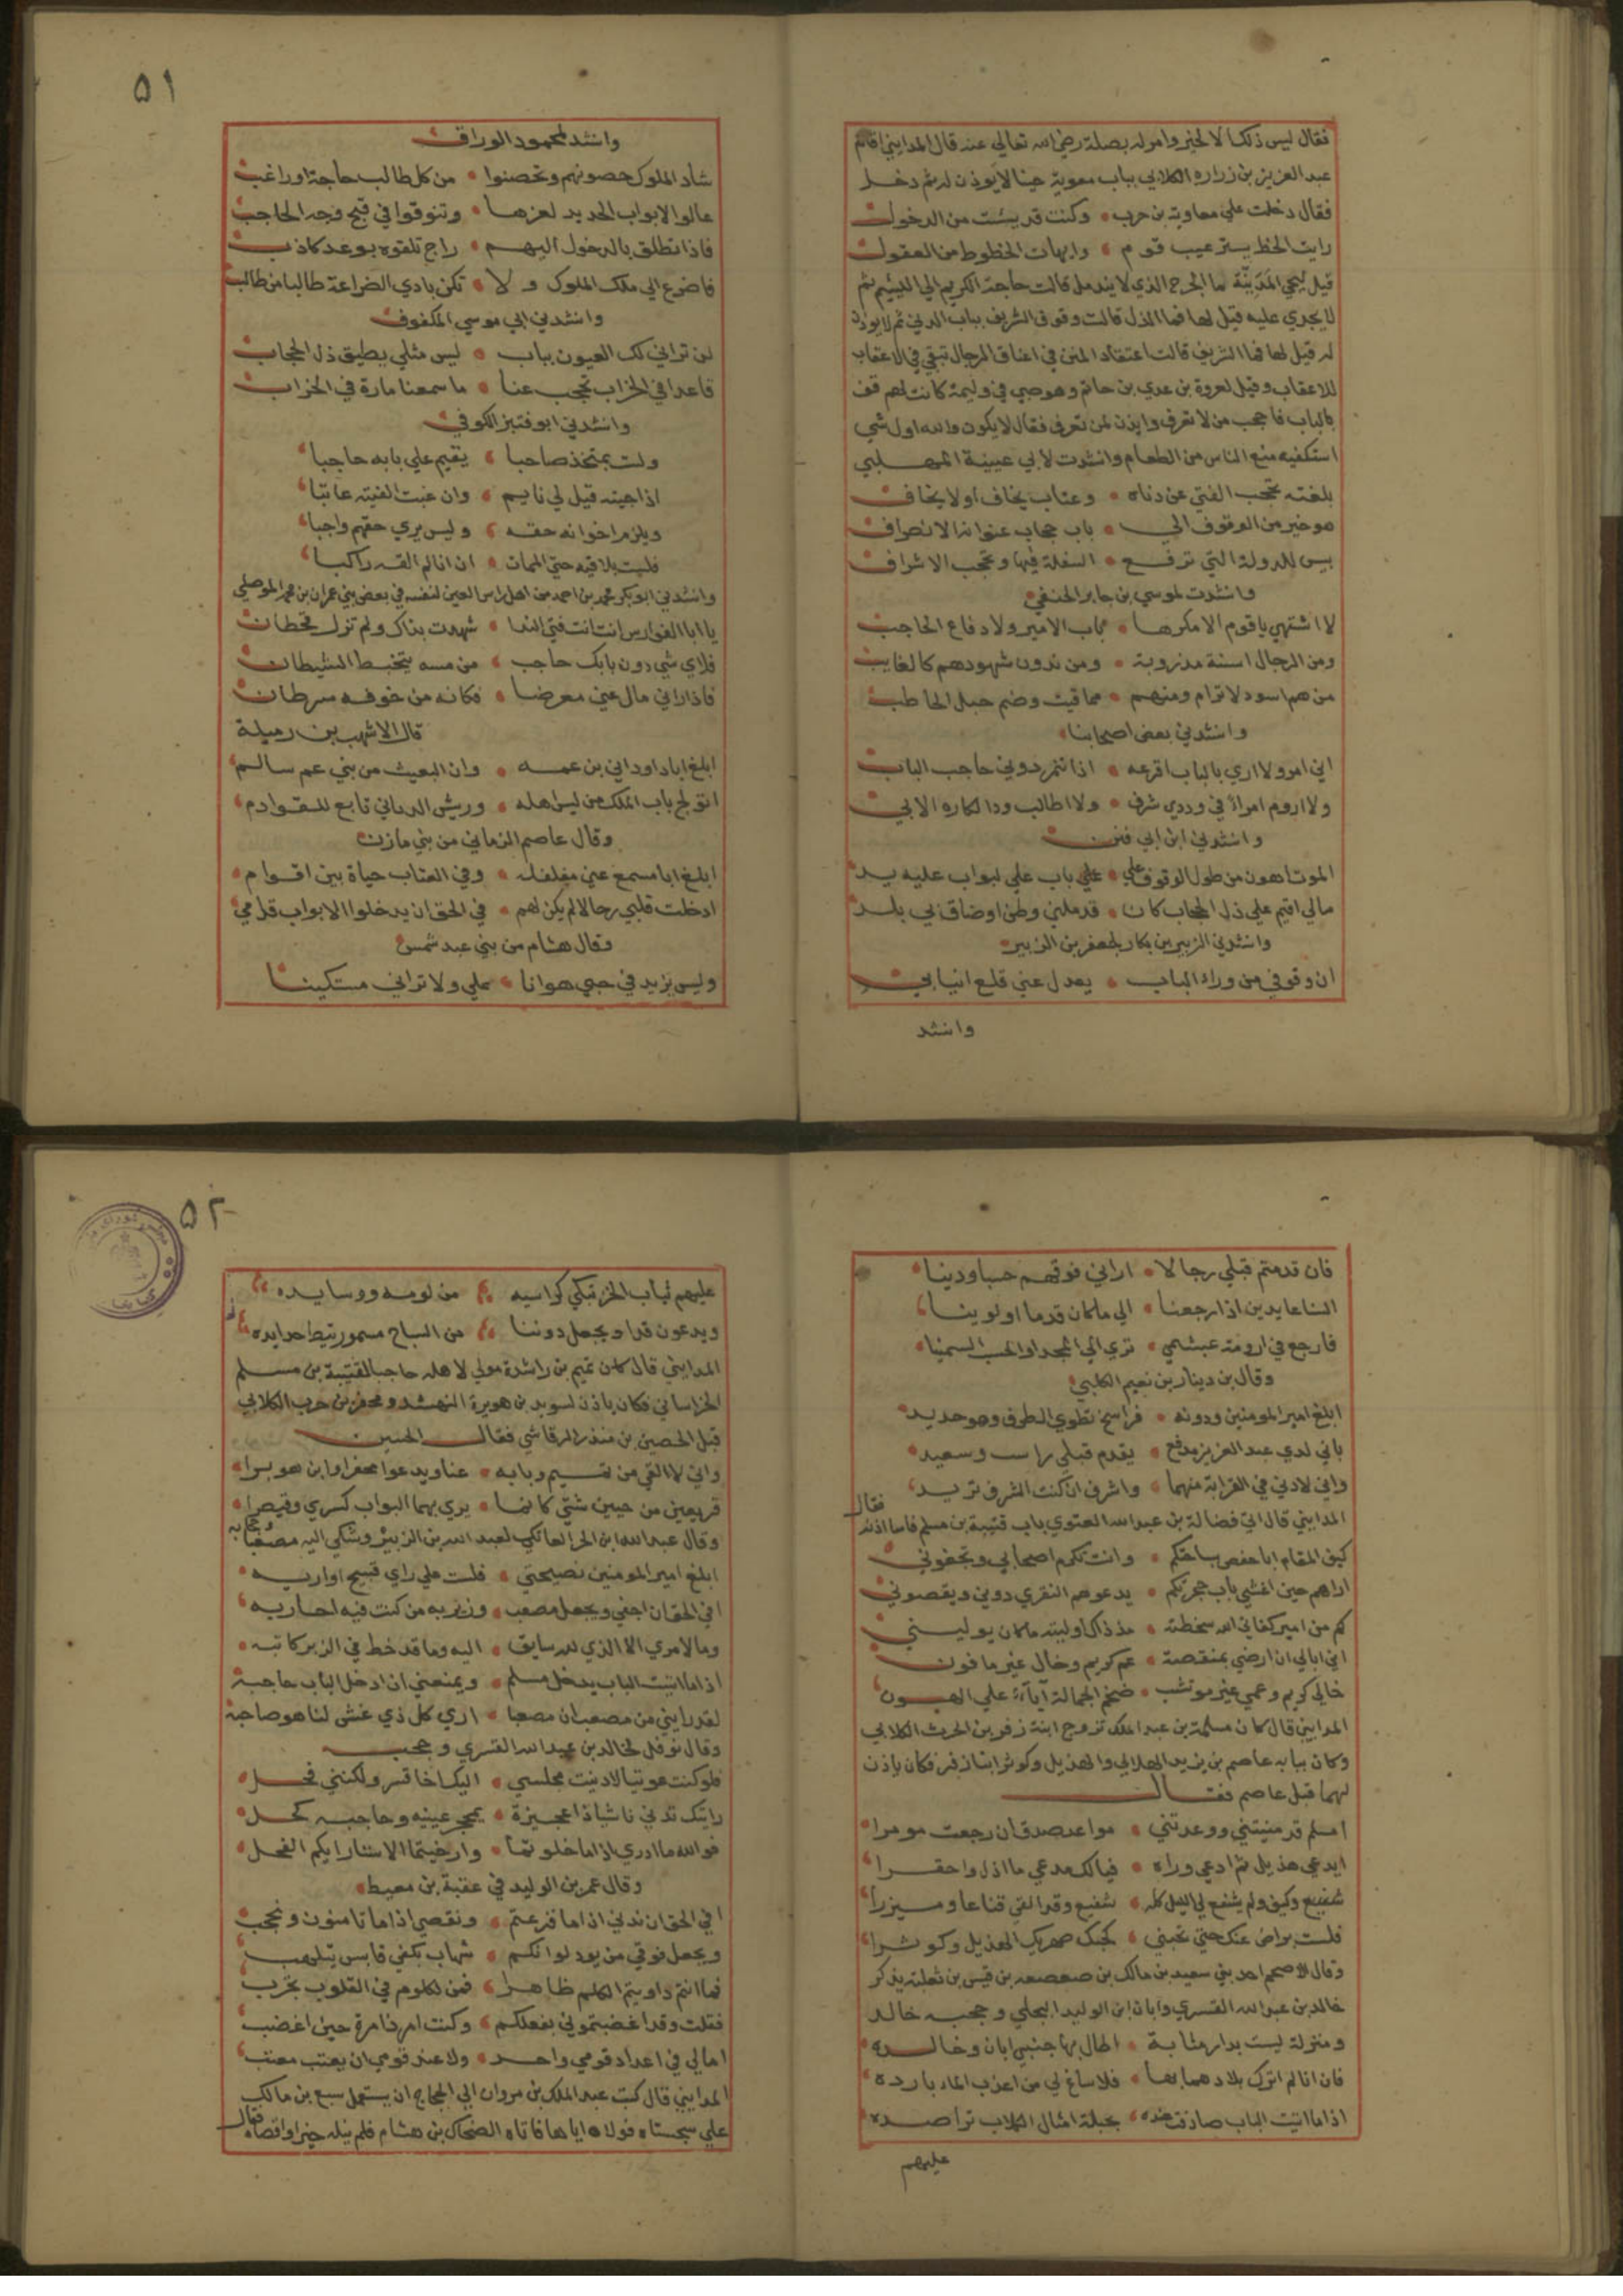 فقال ليس ذلك الا لخير وامر له بصلة رضي الله تعالي عنه قال المدايني اقام
عبد العزيز بن زراره الكلابي بباب معوية حينا لا يوذن له ثم دخل
فقال دخلت علي معاوية بن حرب • وكنت قد يئست من الدخول
رايت الحظ يستر عيب قوم • وايهات الحظوظ من العقول
قيل لحبي المدنية ما الجرح الذي لا يندمل قالت حاجة الكريم الي اللييم ثم
لا يجدي عليه قيل لها فما الذل قالت وقوف الشريف بباب الدني ثم لا يوذن
له قيل لها فما الشريف قالت اعتقاد المنن في اعناق الرجال تبقي في الاعقاب
للاعقاب وقيل لعروة بن عدي بن حاتم وهو صبي في وليمة كانت لهم قف
بالباب فاحجب من لا تعرف وايذن لمن تعرف فقال لا يكون والله اول شي
استكفيه منع الناس من الطعام وانشدت لابي عيينة المهلبي
بلغته تحجب الفتي عن دناه • وعتاب يخاف او لا يخاف
هو خير من الوقوف الي • باب حجاب عنوانه الانصراف
بيس للدولة التي ترفع • السفلة فيها وتحجب الاشراف
وانشدت لموسي بن جابر الحنفي
لا اشتهي يا قوم الا مكرها • باب الامير ولا دفاع الحاجب
ومن الرجال اسنة مذروبة • ومن ندون شهودهم كالغايب
من هم اسود لا ترام ومنهم • مما قيت وضم حبل الحاطب
وانشدني بعض اصحابنا
اني امرو لا اري بالباب اقرعه • اذا تنمر دوني حاجب الباب
ولا اروم امراء في وردي شرف • ولا اطالب ود الكاره الابي
وانشدني ابن ابي فنن
الموت اهون من طول الوقوف علي • علي باب علي لبواب عليه يد
مالي اقيم علي ذل الحجاب كان • قد ملني وطن او ضاق بي بلد
وانشدني الزبير بن بكار لجعفر بن الزبير
ان وقوفي من وراء الباب • يعدل عني قلع انيابي
وانشد
٥١
وانشد لمحمود الوراق
شاد الملوك حصونهم وتحصنوا • من كل طالب حاجة او راغب
عالوا الابواب الحديد لعزها • وتنوقوا في قبح وجه الحاجب
فاذا تطلق بالدخول اليهم • راج تلقوه بوعد كاذب
فاضرع الي ملك الملوك ولا • تكن بادي الضراعة طالبا من طالب
وانشدني ابي موسي المكفوف
لن تراني لك العيون بباب • ليس مثلي يطيق ذل الحجاب
قاعدا في الخراب تحجب عنا • ما سمعنا مارة في الخراب
وانشدني ابو قنبر الكوفي
ولست بمتخذ صاحبا • يقيم علي بابه حاجبا
اذا جيته قيل لي نايم • وان غبت الفيته عاتبا
ويلزم اخوانه حقه • وليس يري حقهم واجبا
فلست بلاقيه حتي الممات • ان انا لم القه راكبا
وانشدني ابو بكر محمد بن احمد من اهل راس العين لنفسه في بعض بني عمران بن محمد الموصلي
يا ابا الفوارس انت انت فتي الندا • شهدت بذاك ولم تزل قحطان
فلاي شي دون بابك حاجب • من مسه يتخبط الشيطان
فاذا راني مال عني معرضا • فكانه من خوفه سرطان
قال الاشهب بن رميلة
ابلغ ابا داود اني بن عمه • وان البعيث من بني عم سالم
اتولج باب الملك من ليس اهله • وريش الذناني تابع للقوادم
وقال عاصم الزماني من بني مازن
ابلغ ابا مسمع عني مغلغلة • وفي العتاب حياة بين اقوام
ادخلت قلبي رجالا لم يكن لهم • في الحق ان يدخلوا الابواب قدامي
وقال هشام من بني عبد شمس
وليس يزيد في حبي هوانا • علي ولا تراني مستكينا
فان قدمتم قبلي رجالا • اراني فوقهم حسبا ودينا
السنا عايدين اذا رجعنا • الي ما كان قدما اولوينا
فارجع في ارومة عبشمي • تري لي المجد او الحسب السمينا
وقال بن دينار بن نعيم الكلبي
ابلغ امير المومنين ودونه • فراسخ تطوي الطرف وهو حديد
باني لدي عبد العزيز مدفع • يقدم قبلي راسب وسعيد
واني لادني في القرابة منهما • واشرف ان كنت الشرف تريد
المدايني قال اتي فضالة بن عبد الله الغنوي باب قتيبة بن مسلم فاسا اذنه فقال
كيف المقام ابا حفص بساحتكم • وانت تكرم اصحابي وتجفوني
اراهم حين اغشي باب حجرتكم • يدعوهم النقري دوني ويقصوني
كم من امير كفاني الله سخطته • مذ ذاك اوليته ما كان يوليني
اني ابالي ان ارضي بمنقصة • عم كريم وخال غير مافون
خالي كريم وعمي غير موتشب • ضخم الجمالة آباء علي الهون
المدايني قال كان مسلمة بن عبد الملك تزوج ابنة زفر بن الحرث الكلابي
وكان ببابه عاصم بن يزيد الهلالي والهذيل وكوثر ابنا زفر فكان ياذن
لهما قبل عاصم فقال
امسلم قد منيتني ووعدتني • مواعد صدق ان رجعت مومرا
ايدعي هذيل ثم ادعي وراه • فيا لك مدعي ما اذل واحقرا
شفيع وكيف ولم يشفع لي الليل كله • شفيع وقد القي قناعا وميزرا
فلست براض عنك حتي تحبني • كحبك صهريك الهذيل وكوثرا
وقال الاصحم احد بني سعيد بن مالك بن صعصعه بن قيس بن ثعلبة يذكر
خالد بن عبد الله القسري وابان ابن الوليد البجلي وحجبه خالد
ومنزلة ليست بدار مثابة • اطال بها حنبس ابان وخالده
فان انا لم اترك بلادهما بها • فلا ساغ لي من اعذب الماء بارده
اذا ما اتيت الباب صادفت عنده • بجبلة امثال الكلاب تراصده
عليهم
٥٢
عليهم ثياب الخز تبكي كراسيه • من لومه ووسايده
ويدعون قدا ويجعل دوننا • من الساج مسمور تيط حدايده
المدايني قال كان تميم بن راشد مولي لاهله حاجبا لقتيبة بن مسلم
الخراساني فكان ياذن لسويد بن هويرة النهشد ومحفز بن حرب الكلابي
قبل الحصين بن منذر الرقاشي فقال الحصين
واني لالقي من تميم وبابه • عنا ويدعوا محفرا وابن هوبرا
قريعين من حيين شتي كانما • يري بهما البواب كسري وقيصرا
وقال عبد الله ابن الحر العاتكي لعبد الله بن الزبير وشكي اليه مصعبا وحجابه
ابلغ امير المومنين نصيحتي • فلست علي راي قبيح اواربه
افي الحق ان اجفي ويجعل مصعب • وزيريه من كنت فيه احاربه
وما لامري الا الذي لله سايق • اليه وما قد خط في الزبر كاتبه
اذا ما اتيت الباب يدخل مسلم • ويمنعني ان ادخل الباب حاجبه
لقد رابني من مصعب ان مصعبا • اري كل ذي غش لنا هو صاحبه
وقال نوفل لخالد بن عبد الله القسري وحجب
فلو كنت عوتيا لادنيت مجلسي • اليك اخا قسر ولكنني فحل
رايتك تدني ناشيا ذا عجيزة • بمحجر عينيه وحاجبه كحل
فوالله ما ادري اذا ما خلوتما • وارخيتما الاستار ايكم الفحل
وقال عمر بن الوليد في عقبة بن معيط
افي الحق ان ندني اذا ما فزعتم • ونقصي اذا ما تامنون ونحجب
ويجعل فوقي من يود لو انكم • شهاب بكفي قابس يتلهب
فما انتم داويتم الكلم ظاهرا • فمن لكلوم في القلوب تخرب
فقلت وقد اغضبتموني بفعلكم • وكنت امرءا ذا مرة حين اغضب
امالي في اعداد قومي واحد • ولا عند قومي ان يعتب معتب
المدايني قال كتب عبد الملك بن مروان الي الحجاج ان يستعمل سبع بن مالك
علي سجستان فولاه اياها فاتاه الضحاك بن هشام فلم ينله خيرا واقصاه فقال